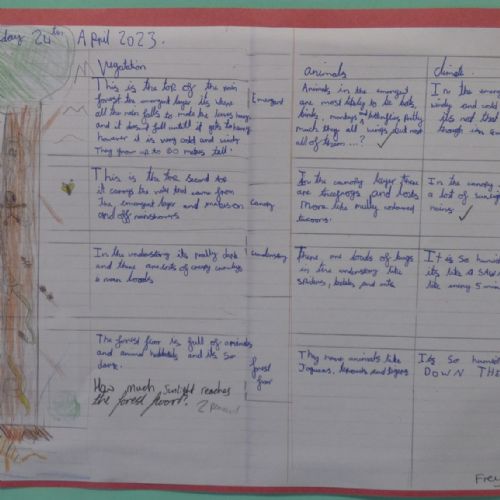 day 24th April 2023.
Vegetation
This is the top of the rain
forest the emergent layer its where
all the rain falls to make the leaves
and it doesnt fall untill it gets to
however it is very cold and windy
They grow up to 60 metres tall.
Emergent
animals
Animals in the emergent
are most likely to be bats,
birds, monkeys and butterflies pretty
much they all wings but not
all of them ...?
climate
In the emerg
windy and cold
its not that
though its
This is the
it carrys the
the emergent layer and
and of rainshowers
canopy
In the canopy layer there
are treefrogs and lots
more like multy coloured
toucans.
In the canopy
a lot of sunligh
rains.
In the understory its pretty dark
and there are lots of creepy crawlys
understory
There are loads of bugs
in the understory like
spiders, beetles, and ants
It is so humi
its like a
like every 5 min
The forest floor is full of animals
and animal habitats and its so
dark.
How much sunlight reaches
the forest floor?
2 percent
forest
floor
They have animals like
Jaguars, leopards and tigers
Its so humi
DOWN THE
Frey